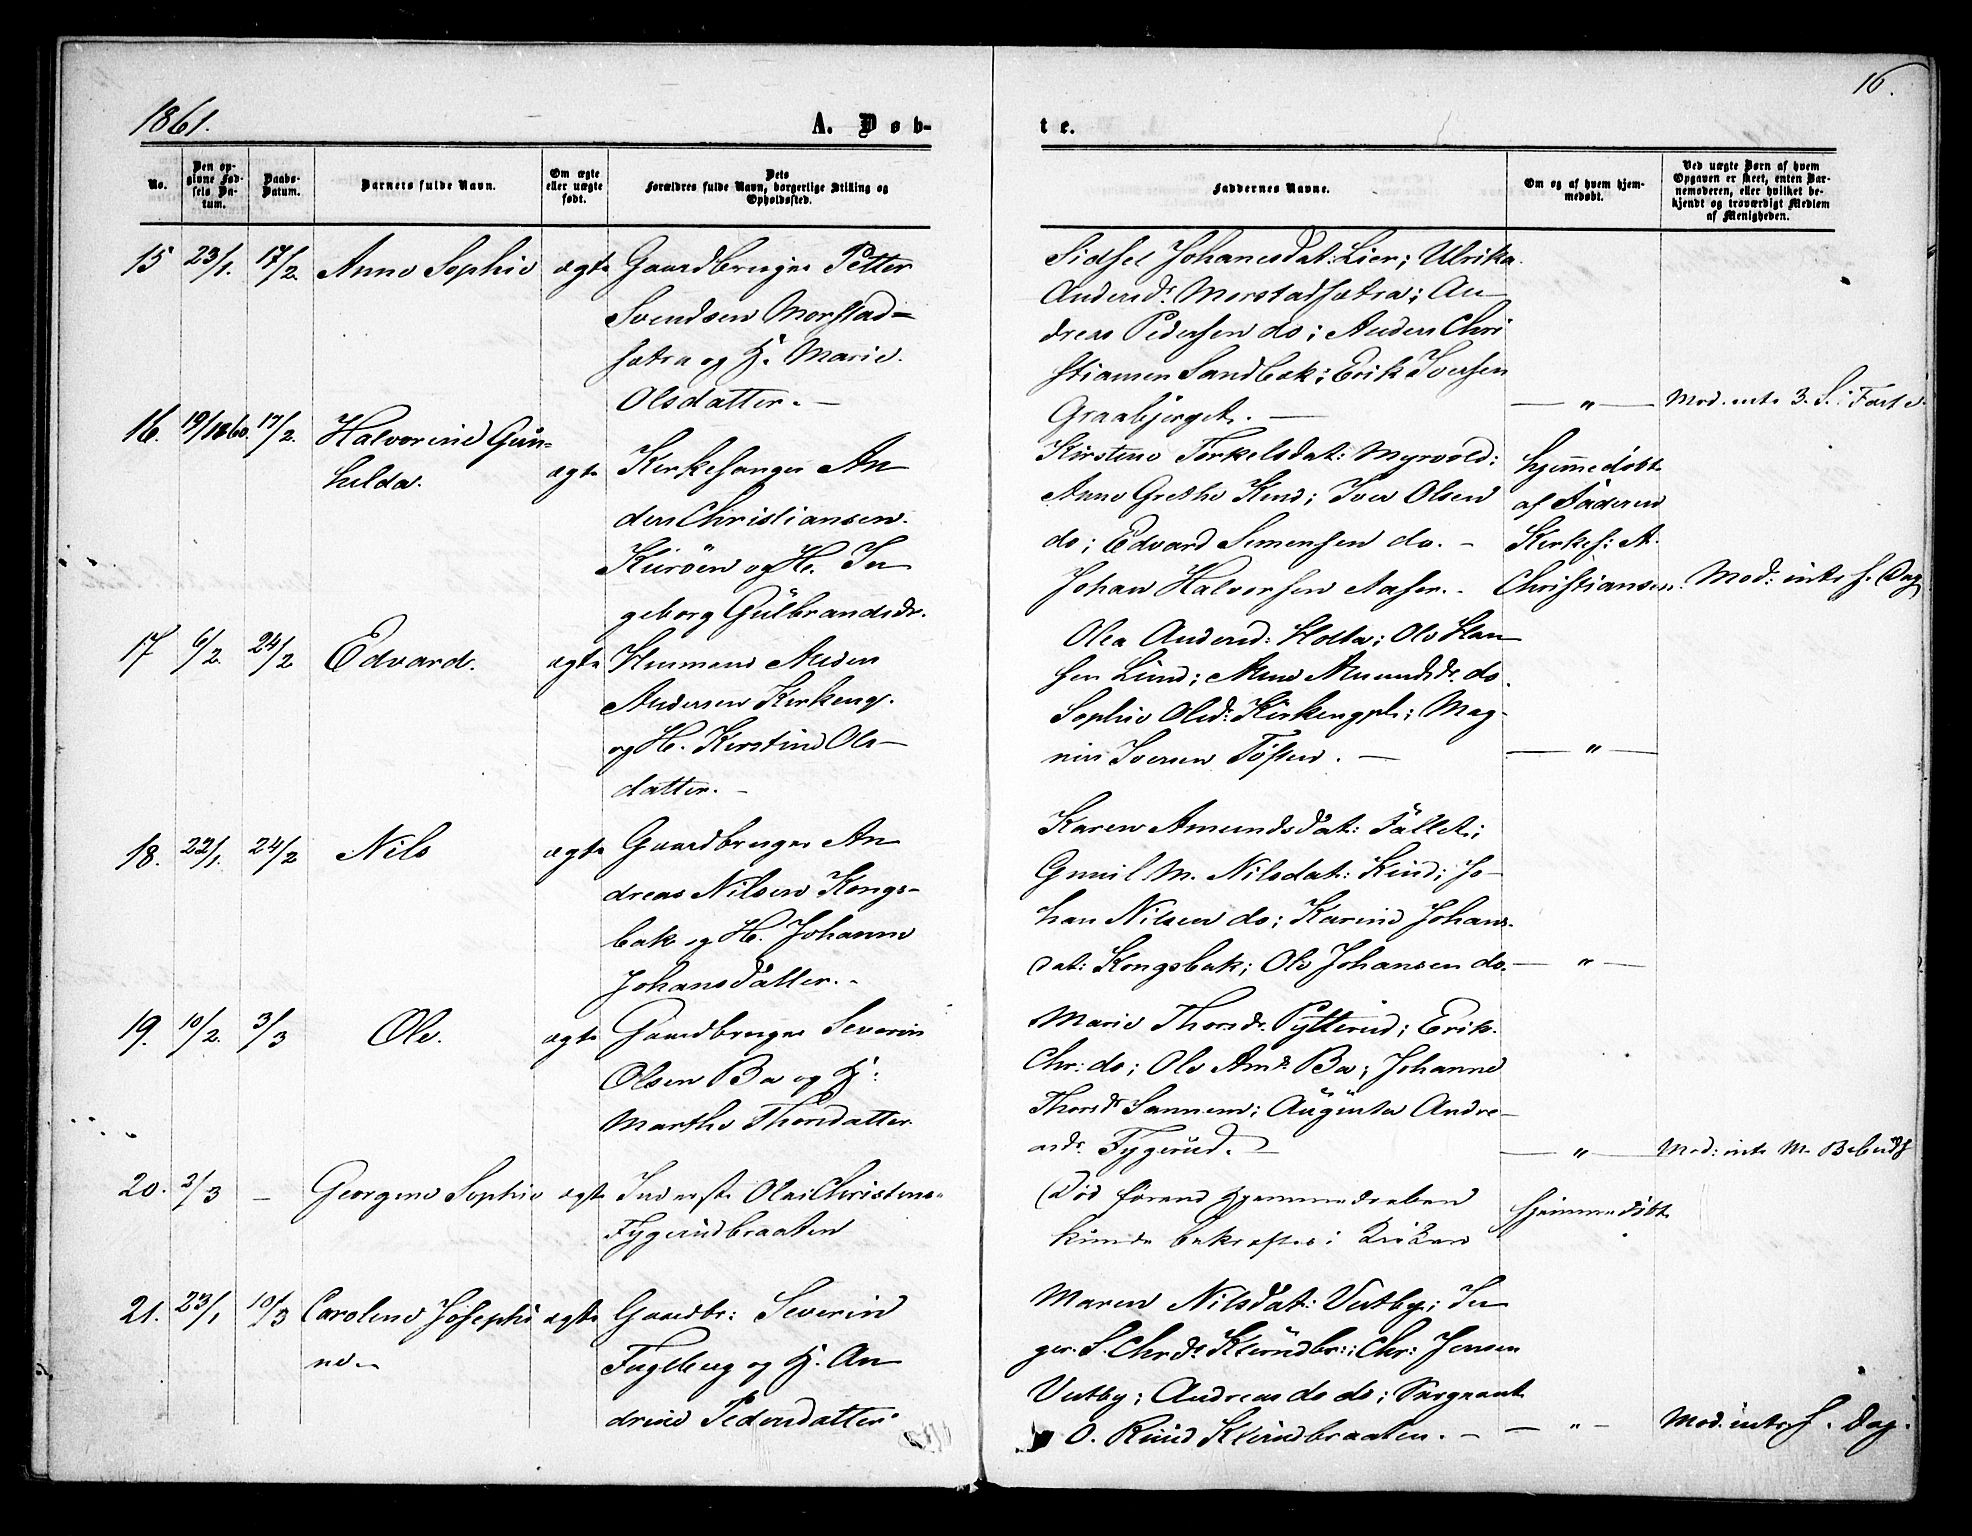 16.
1861.
A. Døb-
te.
No.
Den op-
givne Fød-
sels Da-
tum.
Daabs-
Datum.
Barnets fulde Navn.
Om ægte
eller uægte
født.
Dets
Forældres fulde Navn, borgerlige Stilling og
Opholdssted.
Faddernes Navne.
Om og af hvem hjem-
medøbt.
Ved uægte Børn af hvem
Opgaven er skeet, enten Bar-
nemoderen, eller hvilket be-
kjendt og troværdigt Medlem
af Menigheden.
15 23/1. 17/2. Anne Sophie ægte Gaardbruger Petter
Svendsen Morstad-
sætra og H. Marie
Olsdatter. —
Sidsel Johanesdat: Lier; Ulrika
Andersdr. Morstadsætra; An-
dreas Pedersen do; Anders Chri
stiansen Sandbak; Erik Iversen
Graabjerget. —
— " — Mod. intr. 3. S. i Faste.
16. 19/1860. 17/2. Halvorine Gun-
hilda.
ægte Kirkesanger An
ders Christiansen
og H. In
geborg Gulbrandsdr.
Kirstine Torkelsdat: Myrvold;
Anne Grethe Kind; Iver Olsen
do; Edvard Simensen do. -
Johan Halvorsen Aaser. -
hjemmedøbt
af Faderen
Kirkes: A.
Christiansen.
Mod: intr. s. Dag
17 6/2. 24/2 Edvard. ægte Husmand
Andersen Kirkeng.
og H. Kirstine Ols-
datter. -
Olea Andersd: Holta; Ole Han
sen Lund; Anne Amundsdr. do.
Sophie Olsd: Kirkengpl.; Mag-
nus Iversen Tøften. —
— " —
18. 22/1. 24/2 Nils ægte Gaardbruger An
dreas Nilsen Kongs-
bak og H. Johanne
Johansdatter. -
Karen Amundsdat: Fallet;
Gunil M. Nilsdat: Kind; Jo-
han Nilsen do; Karine Johans-
dat: Kongsbak; Ole Johansen do. — " —
19. 10/2. 3/3 Ole. ægte Gaardbruger Severin
Olsen Ba og H:
Marthe Thorsdatter
Marie Thorsdr. Pytterud; Erik
Chr: do; Ole Amd. Ba; Johanne
Thorsdr. Sannem; Augusta Andre-
asdr. Fygerud. —
— " — Mod: intr. M. Bebud.
20. 2/3 — Georgine Sophie ægte Inderst Olai Christens.
Fygerudbraaten
Død førend Hjemmedaaben
kunde bekræftes i Kirken
hjemmedøbt
21. 23/1 10/3 Caroline Josephi
ne. -
ægte Gaardbr: Severin
Fuglberg og H. An
drine Pedersdatter
Maren Nilsdat: Vestby; In
ger S. Chrdr. Klundbr.; Chr: Jensen
Vestby; Andreas do do; Sergeant
O. Kind Klundbraaten. —
— " — Mod. intr. s. Dag.